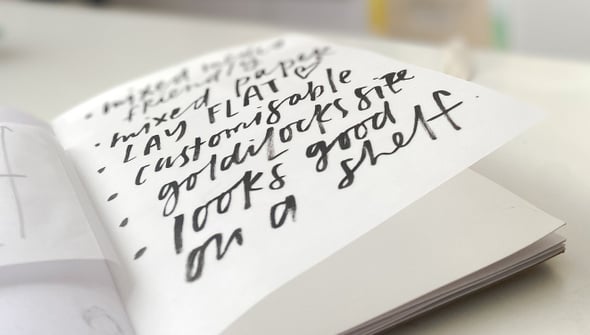 • mixed media
friendly
• mixed paper
• LAY FLAT ♡
• customisable
• goldilocks size
• looks good
on a shelf.